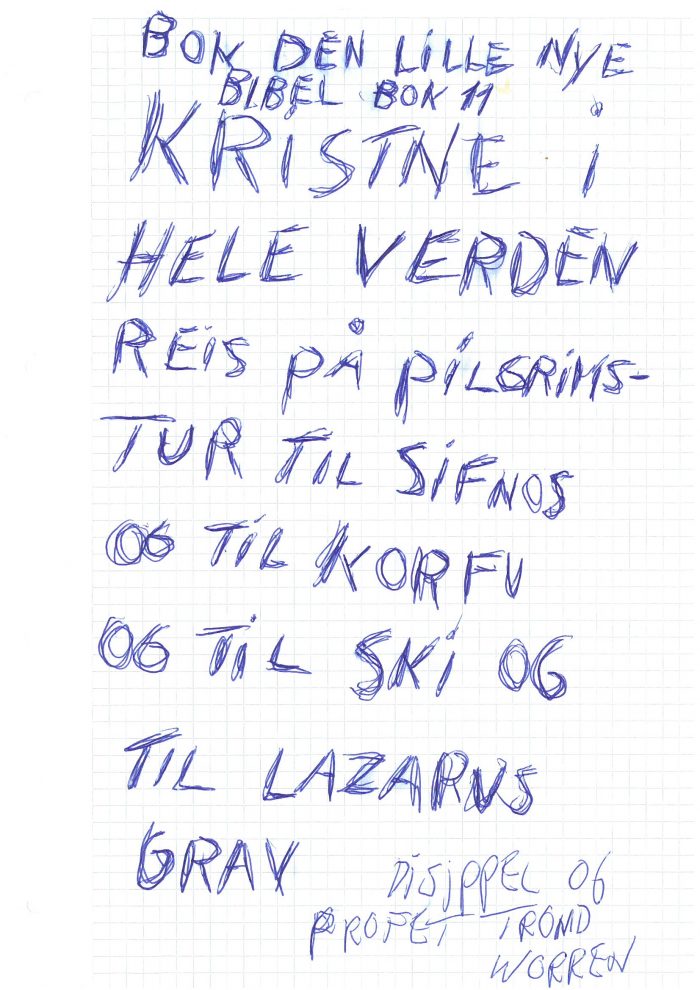 BOK DEN LiLLE NYE
BIBEL BOK 11
KRiSTNE i
HELE VERDEN
REiS PÅ PiLGRiMS-
TUR TiL SiFNOS
OG TiL KORFU
OG TiL SKi OG
TIL LAZARUS
GRAV
DiSiPPEL OG
PROFET TROND
WORREN